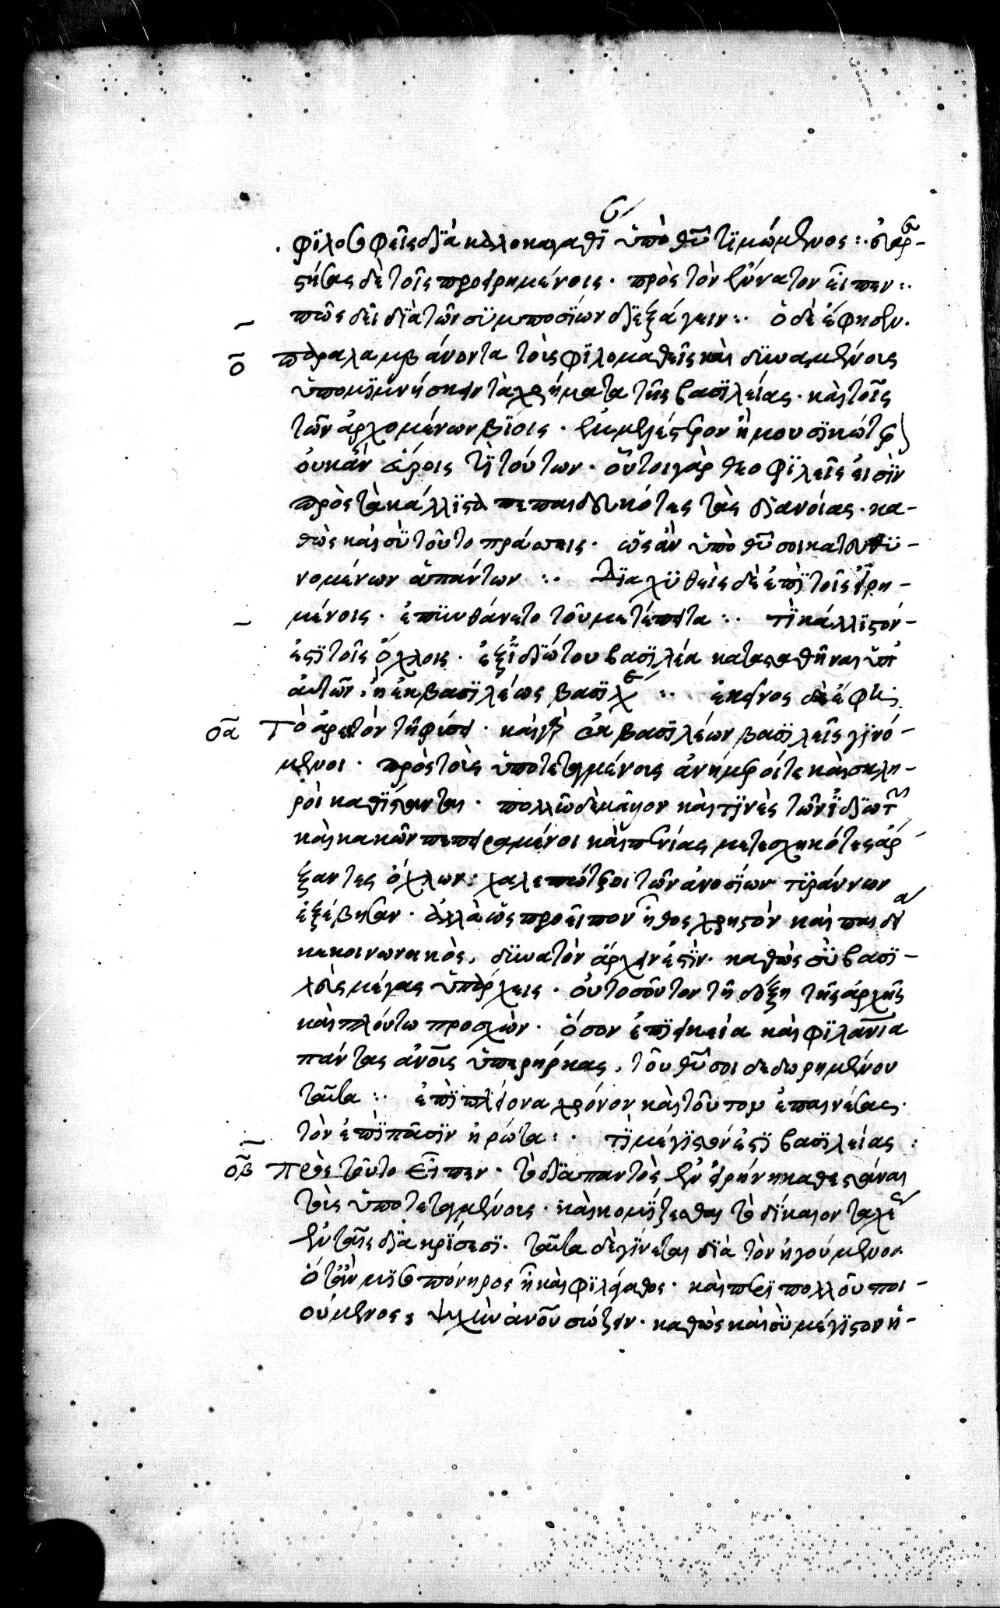 φϊλοσοφεῖς δϊὰ καλοκαγαθϊ ὑπὸ θῦ τϊμώμενος :· εὐαρε-
στήσας δὲ τοῖς προειρημένοις · πρὸς τὸν ἔνατον εἶπεν :·
πῶς δεῖ δϊὰ τῶν συμποσϊων δϊεξάγειν :· ὁ δὲ ἔφησεν ·
ο παραλαμβάνοντα τοὺς φϊλομαθεῖς καὶ δυναμένους
ὑπομϊμνήσκειν τὰ χρήματα τῆς βασϊλείας · καὶ τοῖς
τῶν ἀρχομένων βϊοις · ἐμμελέστερον ἢ μουσϊκώτερ
οὐκ ἂν εὕροις τϊ τούτων · οὗτοι γὰρ θεοφϊλεῖς εἰσϊν
πρὸς τὰ κάλλϊστα πεπαιδευκότες τὰς δϊανοίας · κα-
θὼς καὶ σὺ τοῦτο πράσσεις · ὡς ἂν ὑπὸ θῦ σοι κατευθυ-
νομένων ἁπάντων :· Δϊαχυθεὶς δὲ ἐπϊ τοῖς εἰρη-
μένοις · ἐπυνθάνετο τοῦ μετέπειτα :· τϊ κάλλϊστόν
ἐστϊ τοῖς ὄχλοις · ἐξ ϊδϊώτου βασϊλέα κατασταθῆναι ὑπ
αὐτῶν · ἢ ἐκ βασϊλέως βασϊλε :· ἐκεῖνος δὲ ἔφη ·
οα Τὸ ἄριστον τῇ φύσει · καὶ γὰρ ἐκ βασϊλέων βασϊλεῖς γϊνό-
μενοι · πρὸς τοὺς ὑποτεταγμένους ἀνήμεροί τε καὶ σκλη-
ροὶ καθϊστανται · πολλῶ δὲ μᾶλλον καὶ τϊνὲς τῶν ϊδϊωτ
καὶ κακῶν πεπειραμένοι καὶ πενίας μετεσχηκότες ἄρ
ξαντες ὄχλων · χαλεπώτεροι τῶν ἀνοσϊων τυράννων
ἐξέβησαν · ἀλλὰ ὡς προεῖπον ἦθος χρηστὸν καὶ παιδεία
κεκοινωνηκὸς, δυνατὸν ἄρχειν ἐστϊν · καθὼς σὺ βασϊ-
λεὺς μέγας ὑπάρχεις · οὐ τοσοῦτον τῇ δόξῃ τῆς ἀρχῆς
καὶ πλούτω προσχών · ὅσον ἐπϊεικεία καὶ φϊλανϊα
πάντας ἀνους ὑπερῆρκας, τοῦ θῦ σοι δεδωρημένου
ταῦτα :· ἐπϊ πλείονα χρόνον καὶ τοῦτον ἐπαινέσας ·
τὸν ἐπϊ πᾶσϊν ἠρώτα :· τϊ μέγϊστόν ἐστϊ βασϊλείας :
οβ Πρὸς τοῦτο εἶπεν · τὸ δϊαπαντὸς ἐν εἰρήνη καθεστάναι
τοὺς ὑποτεταγμένους · καὶ κομϊζεσθαι τὸ δϊκαιον ταχέ
ἐν ταῖς δϊακρϊσεσϊ · ταῦτα δὲ γϊνεται δϊὰ τὸν ἡγούμενον ·
ὅταν μϊσοπόνηρος ἦ καὶ φϊλάγαθος · καὶ περϊ πολλοῦ ποι-
ούμενος, ψυχὴν ἀνου σώζειν · καθὼς καὶ σὺ μέγϊστον ἥ-